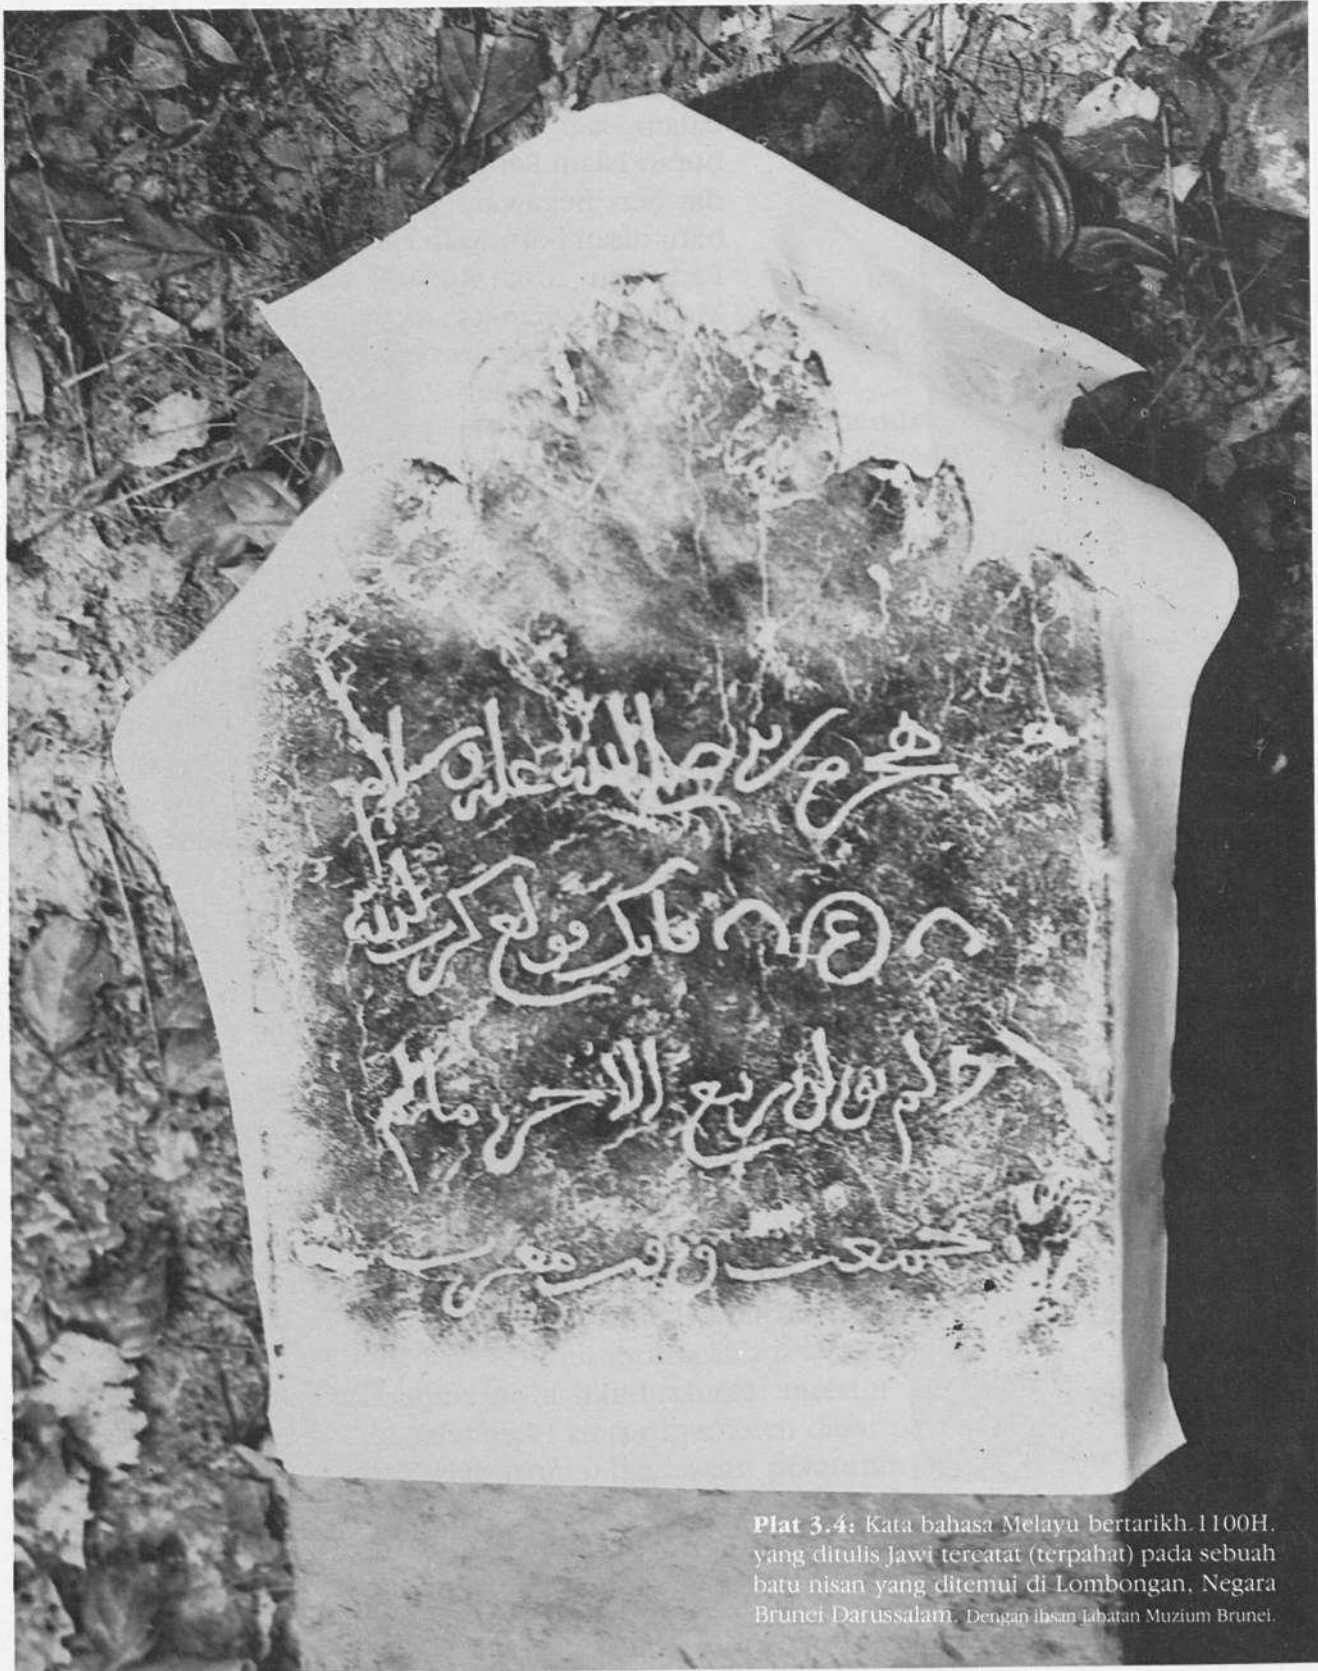 صلى الله عليه وسلم
فولع
دالم بولن ربيع الاخر مالم
جمعت وقت مغرب
Plat 3.4: Kata bahasa Melayu bertarikh 1100H.
yang ditulis Jawi tercatat (terpahat) pada sebuah
batu nisan yang ditemui di Lombongan, Negara
Brunei Darussalam. Dengan ihsan Jabatan Muzium Brunei.